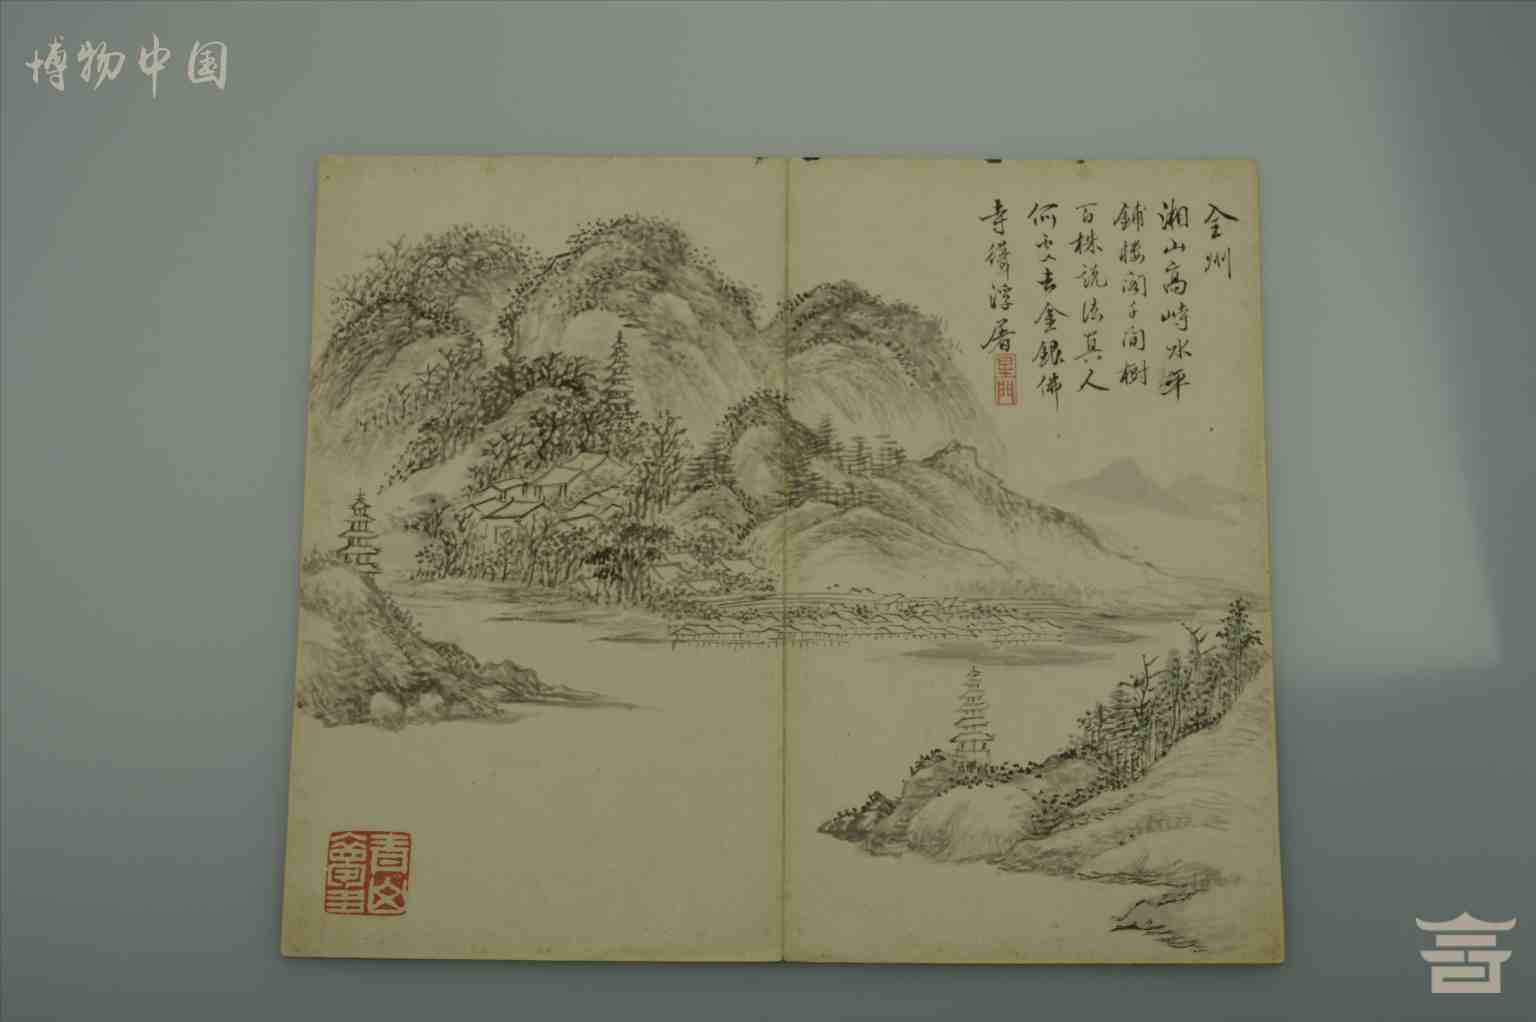 博物中国
全州
湘山高峙水平
铺楼阁千间树
百株说法真人
何处去金银佛
寺绕浮屠
星門
青山